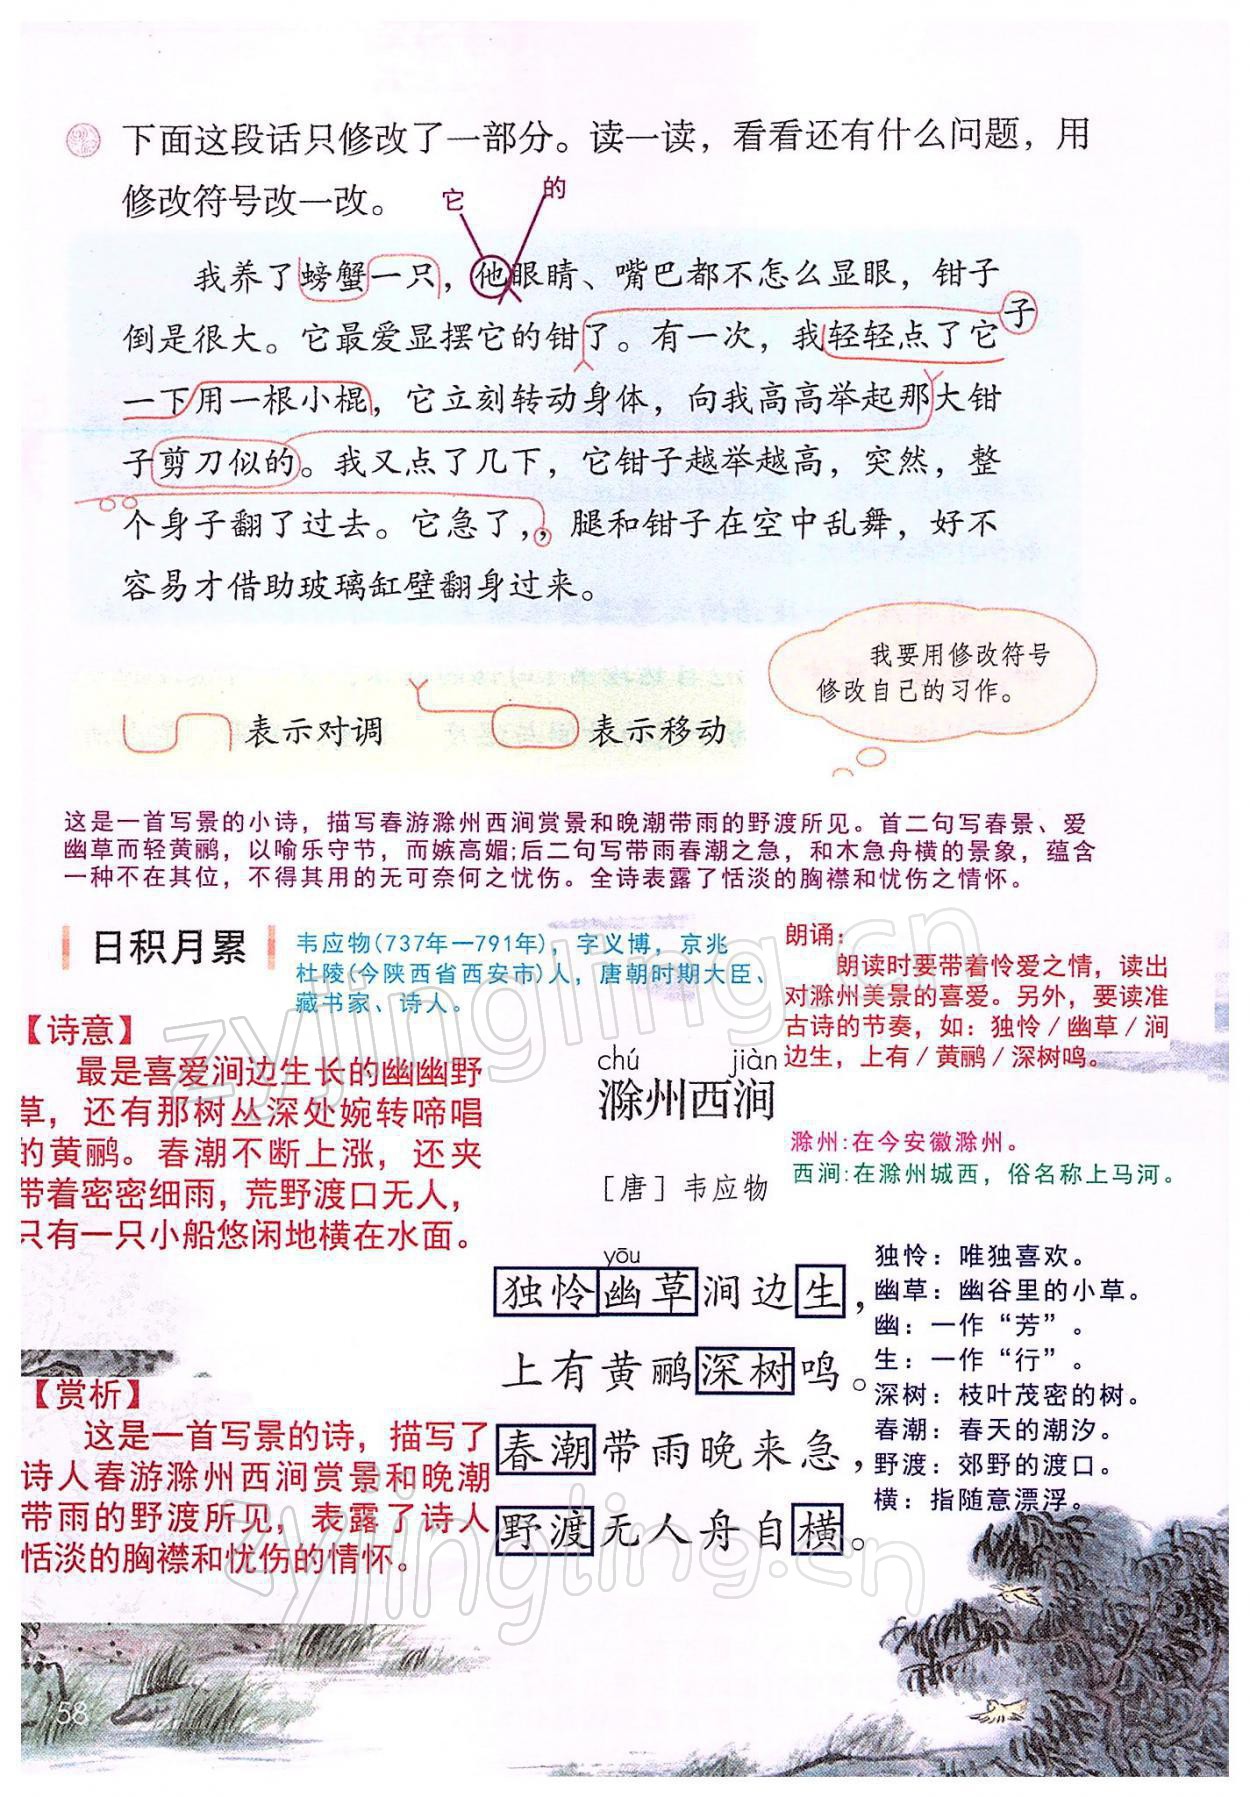 下面这段话只修改了一部分。读一读，看看还有什么问题，用
修改符号改一改。
它
的
我养了螃蟹一只，他眼睛、嘴巴都不怎么显眼，钳子
倒是很大。它最爱显摆它的钳了。有一次，我轻轻点了它
子
一下用一根小棍，它立刻转动身体，向我高高举起那大钳
子剪刀似的。我又点了几下，它钳子越举越高，突然，整
个身子翻了过去。它急了，，腿和钳子在空中乱舞，好不
容易才借助玻璃缸壁翻身过来。
我要用修改符号
修改自己的习作。
表示对调
表示移动
这是一首写景的小诗，描写春游滁州西涧赏景和晚潮带雨的野渡所见。首二句写春景、爱
幽草而轻黄鹂，以喻乐守节，而嫉高媚;后二句写带雨春潮之急，和木急舟横的景象，蕴含
一种不在其位，不得其用的无可奈何之忧伤。全诗表露了恬淡的胸襟和忧伤之情怀。
日积月累
韦应物(737年—791年)，字义博，京兆
杜陵(今陕西省西安市)人，唐朝时期大臣、
藏书家、诗人。
朗诵：
朗读时要带着怜爱之情，读出
对滁州美景的喜爱。另外，要读准
古诗的节奏，如：独怜/幽草/涧
边生，上有/黄鹂/深树鸣。
【诗意】
最是喜爱涧边生长的幽幽野
草，还有那树丛深处婉转啼唱
的黄鹂。春潮不断上涨，还夹
带着密密细雨，荒野渡口无人，
只有一只小船悠闲地横在水面。
chú jiàn
滁州西涧
[唐] 韦应物
滁州:在今安徽滁州。
西涧:在滁州城西，俗名称上马河。
yōu
独怜幽草涧边生，
上有黄鹂深树鸣。
春潮带雨晚来急，
野渡无人舟自横。
独怜：唯独喜欢。
幽草：幽谷里的小草。
幽：一作“芳”。
生：一作“行”。
深树：枝叶茂密的树。
春潮：春天的潮汐。
野渡：郊野的渡口。
横：指随意漂浮。
【赏析】
这是一首写景的诗，描写了
诗人春游滁州西涧赏景和晚潮
带雨的野渡所见，表露了诗人
恬淡的胸襟和忧伤的情怀。
58
zyjingling.cn
zyjingling.cn